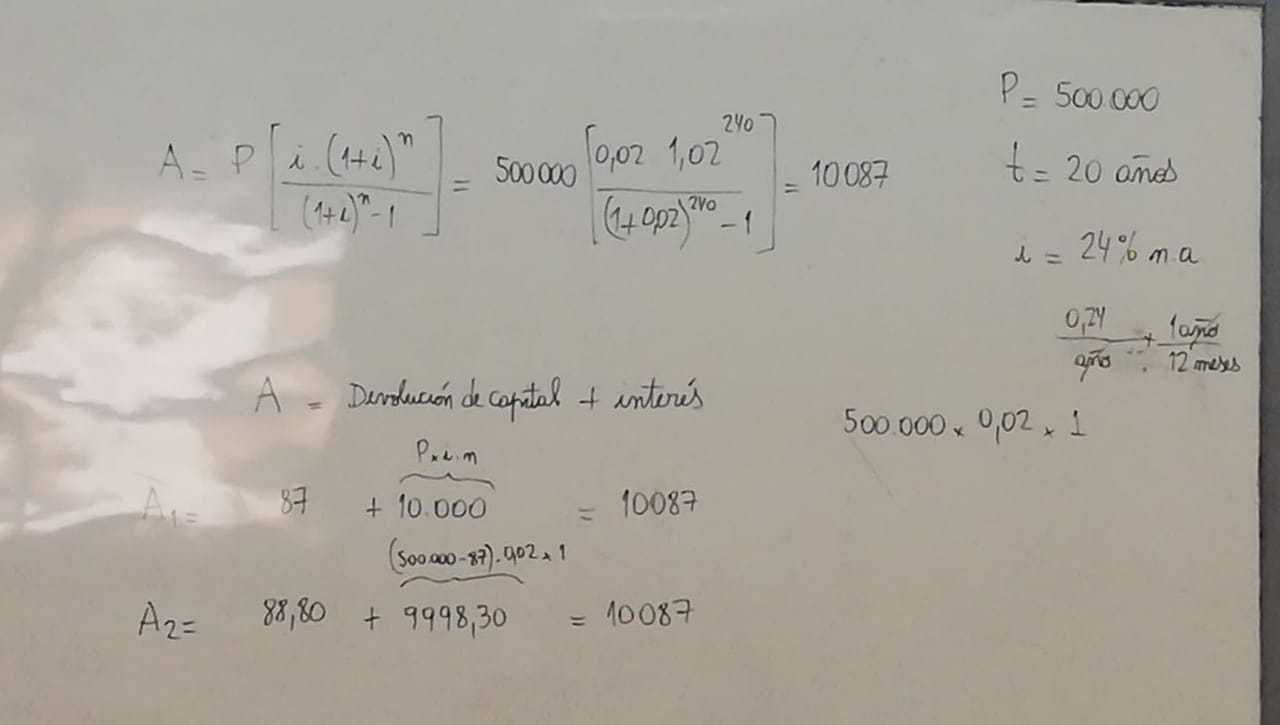 A = P [ i . (1+i)^n / (1+i)^n - 1 ] = 500 000 [ 0,02 1,02^240 / (1+0,02)^240 - 1 ] = 10 087
P = 500.000
t = 20 años
i = 24% n.a
0,24 / año * 1 año / 12 meses
A = Devolución de capital + interés
500.000 x 0,02 x 1
P x i . n
A1 = 87 + 10.000 = 10087
(500.000 - 87) . 0,02 x 1
A2 = 88,80 + 9998,30 = 10087